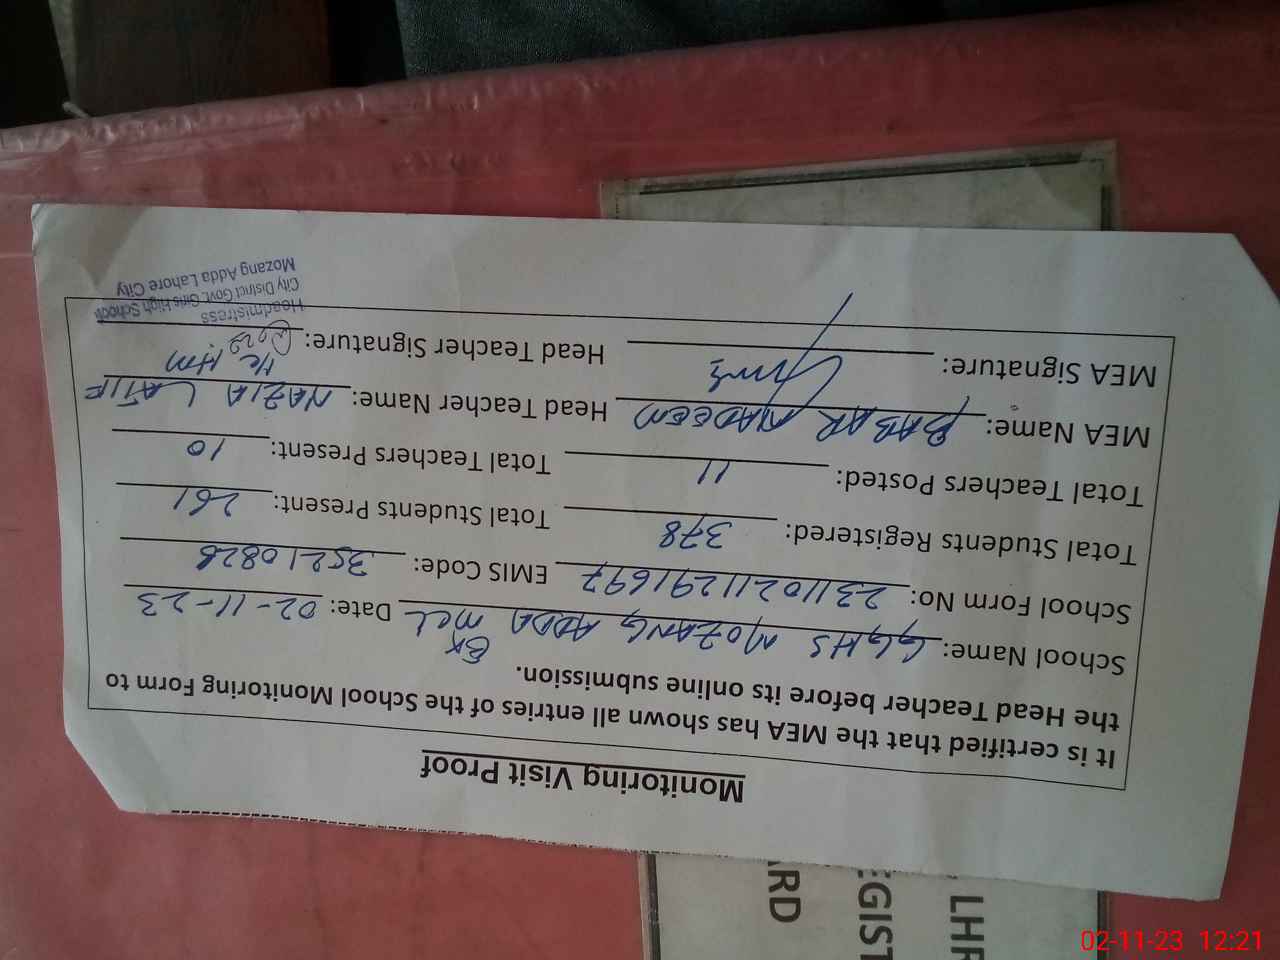 Monitoring Visit Proof
It is certified that the MEA has shown all entries of the School Monitoring Form to
the Head Teacher before its online submission.
School Name: GGHS MOZANG ADDA EX MCL Date: 02-11-23
School Form No: 23110211291697 EMIS Code: 35210828
Total Students Registered: 378 Total Students Present: 261
Total Teachers Posted: 11 Total Teachers Present: 10
MEA Name: BABAR NADEEM Head Teacher Name: NAZIA LATIF
MEA Signature: Head Teacher Signature:
Headmistress
City District Govt. Girls High School
Mozang Adda Lahore City
LHR
EGIST
ARD
02-11-23 12:21